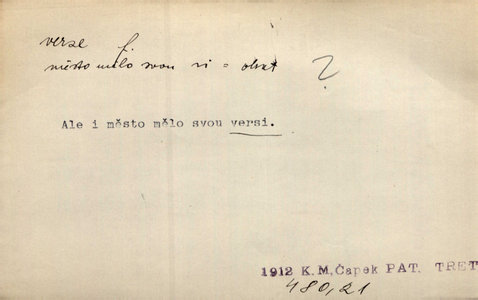 verze f.
město mělo svou ři = obzt ?
Ale i město mělo svou versi.
1912 K.M.Čapek PAT. TŘET
480,21